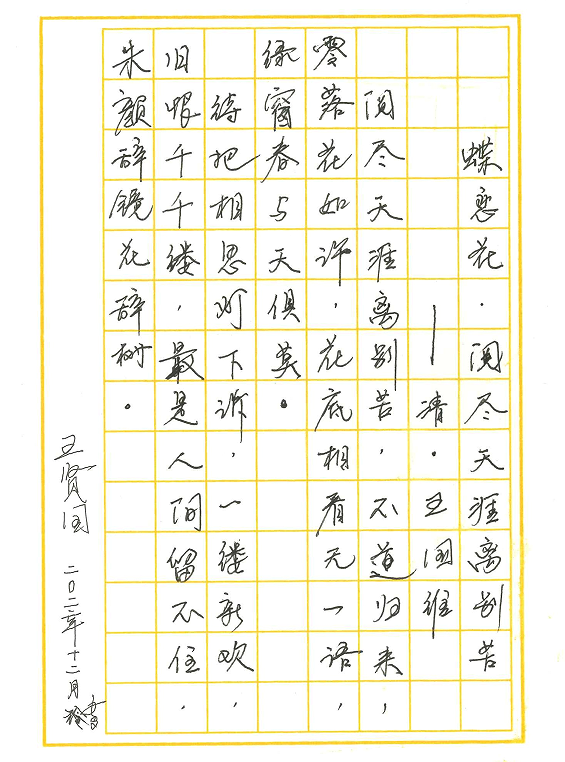 蝶恋花·阅尽天涯离别苦
—清·王国维
阅尽天涯离别苦,不道归来,
零落花如许,花底相看无一语,
绿窗春与天俱莫。
待把相思灯下诉,一缕新欢,
旧恨千千缕,最是人间留不住,
朱颜辞镜花辞树。
王贤国 二〇二二年十二月